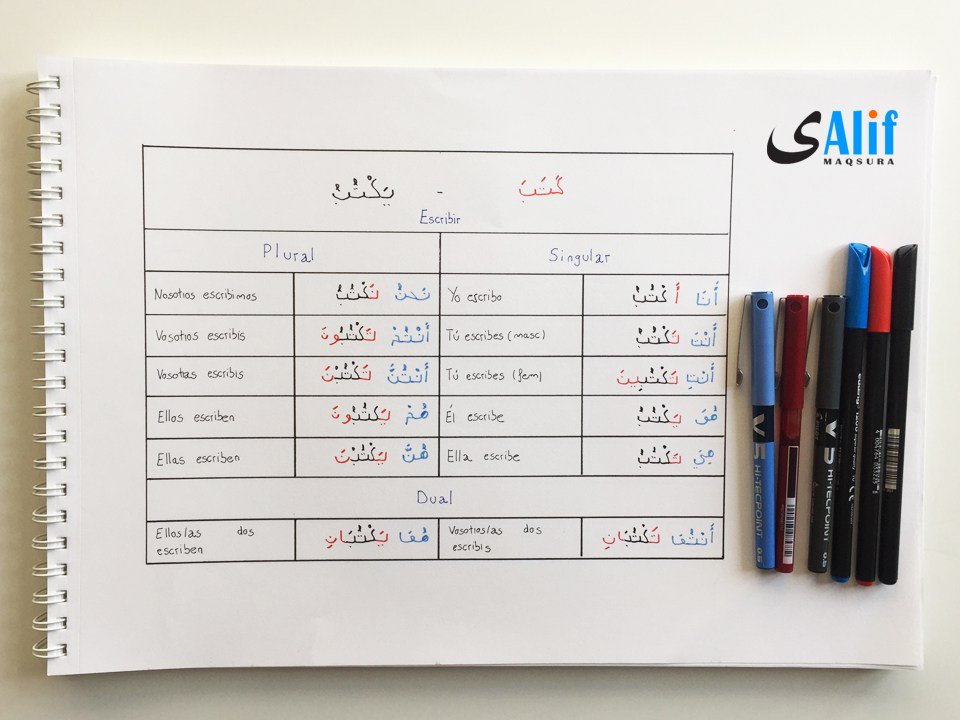 Alif
ى
MAQSURA
كَتَبَ - يَكْتُبُ
Escribir
Plural
Singular
Nosotros escribimos
نَحْنُ نَكْتُبُ
Yo escribo
أَنَا أَكْتُبُ
Vosotros escribís
أَنْتُمْ تَكْتُبُونَ
Tú escribes (masc)
أَنْتَ تَكْتُبُ
Vosotras escribís
أَنْتُنَّ تَكْتُبْنَ
Tú escribes (fem)
أَنْتِ تَكْتُبِينَ
Ellos escriben
هُمْ يَكْتُبُونَ
Él escribe
هُوَ يَكْتُبُ
Ellas escriben
هُنَّ يَكْتُبْنَ
Ella escribe
هِيَ تَكْتُبُ
Dual
Ellos/as dos
escriben
هُمَا يَكْتُبَانِ
Vosotros/as dos
escribís
أَنْتُمَا تَكْتُبَانِ
V5 HI-TECPOINT 0.5
V5 HI-TECPOINT 0.5